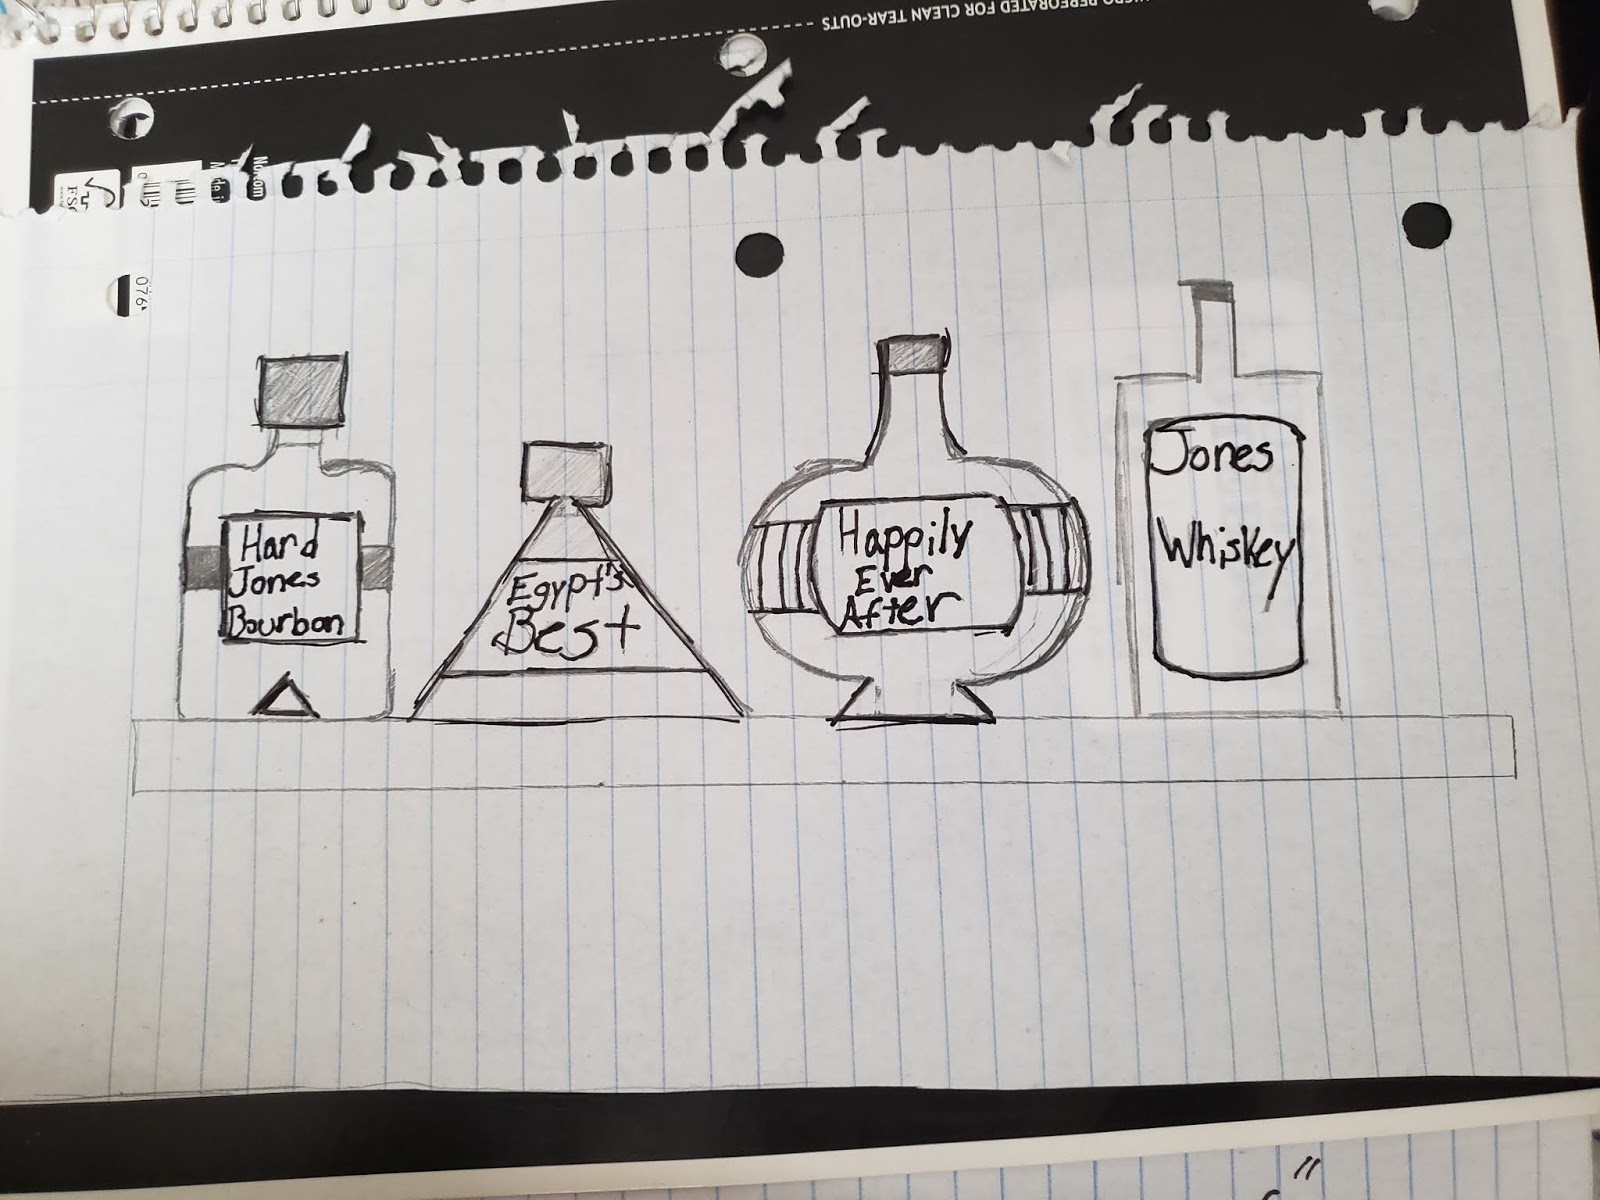 MICRO PERFORATED FOR CLEAN TEAR-OUTS
076
Hard
Jones
Bourbon
Egypt's
Best
Happily
Ever
After
Jones
Whiskey